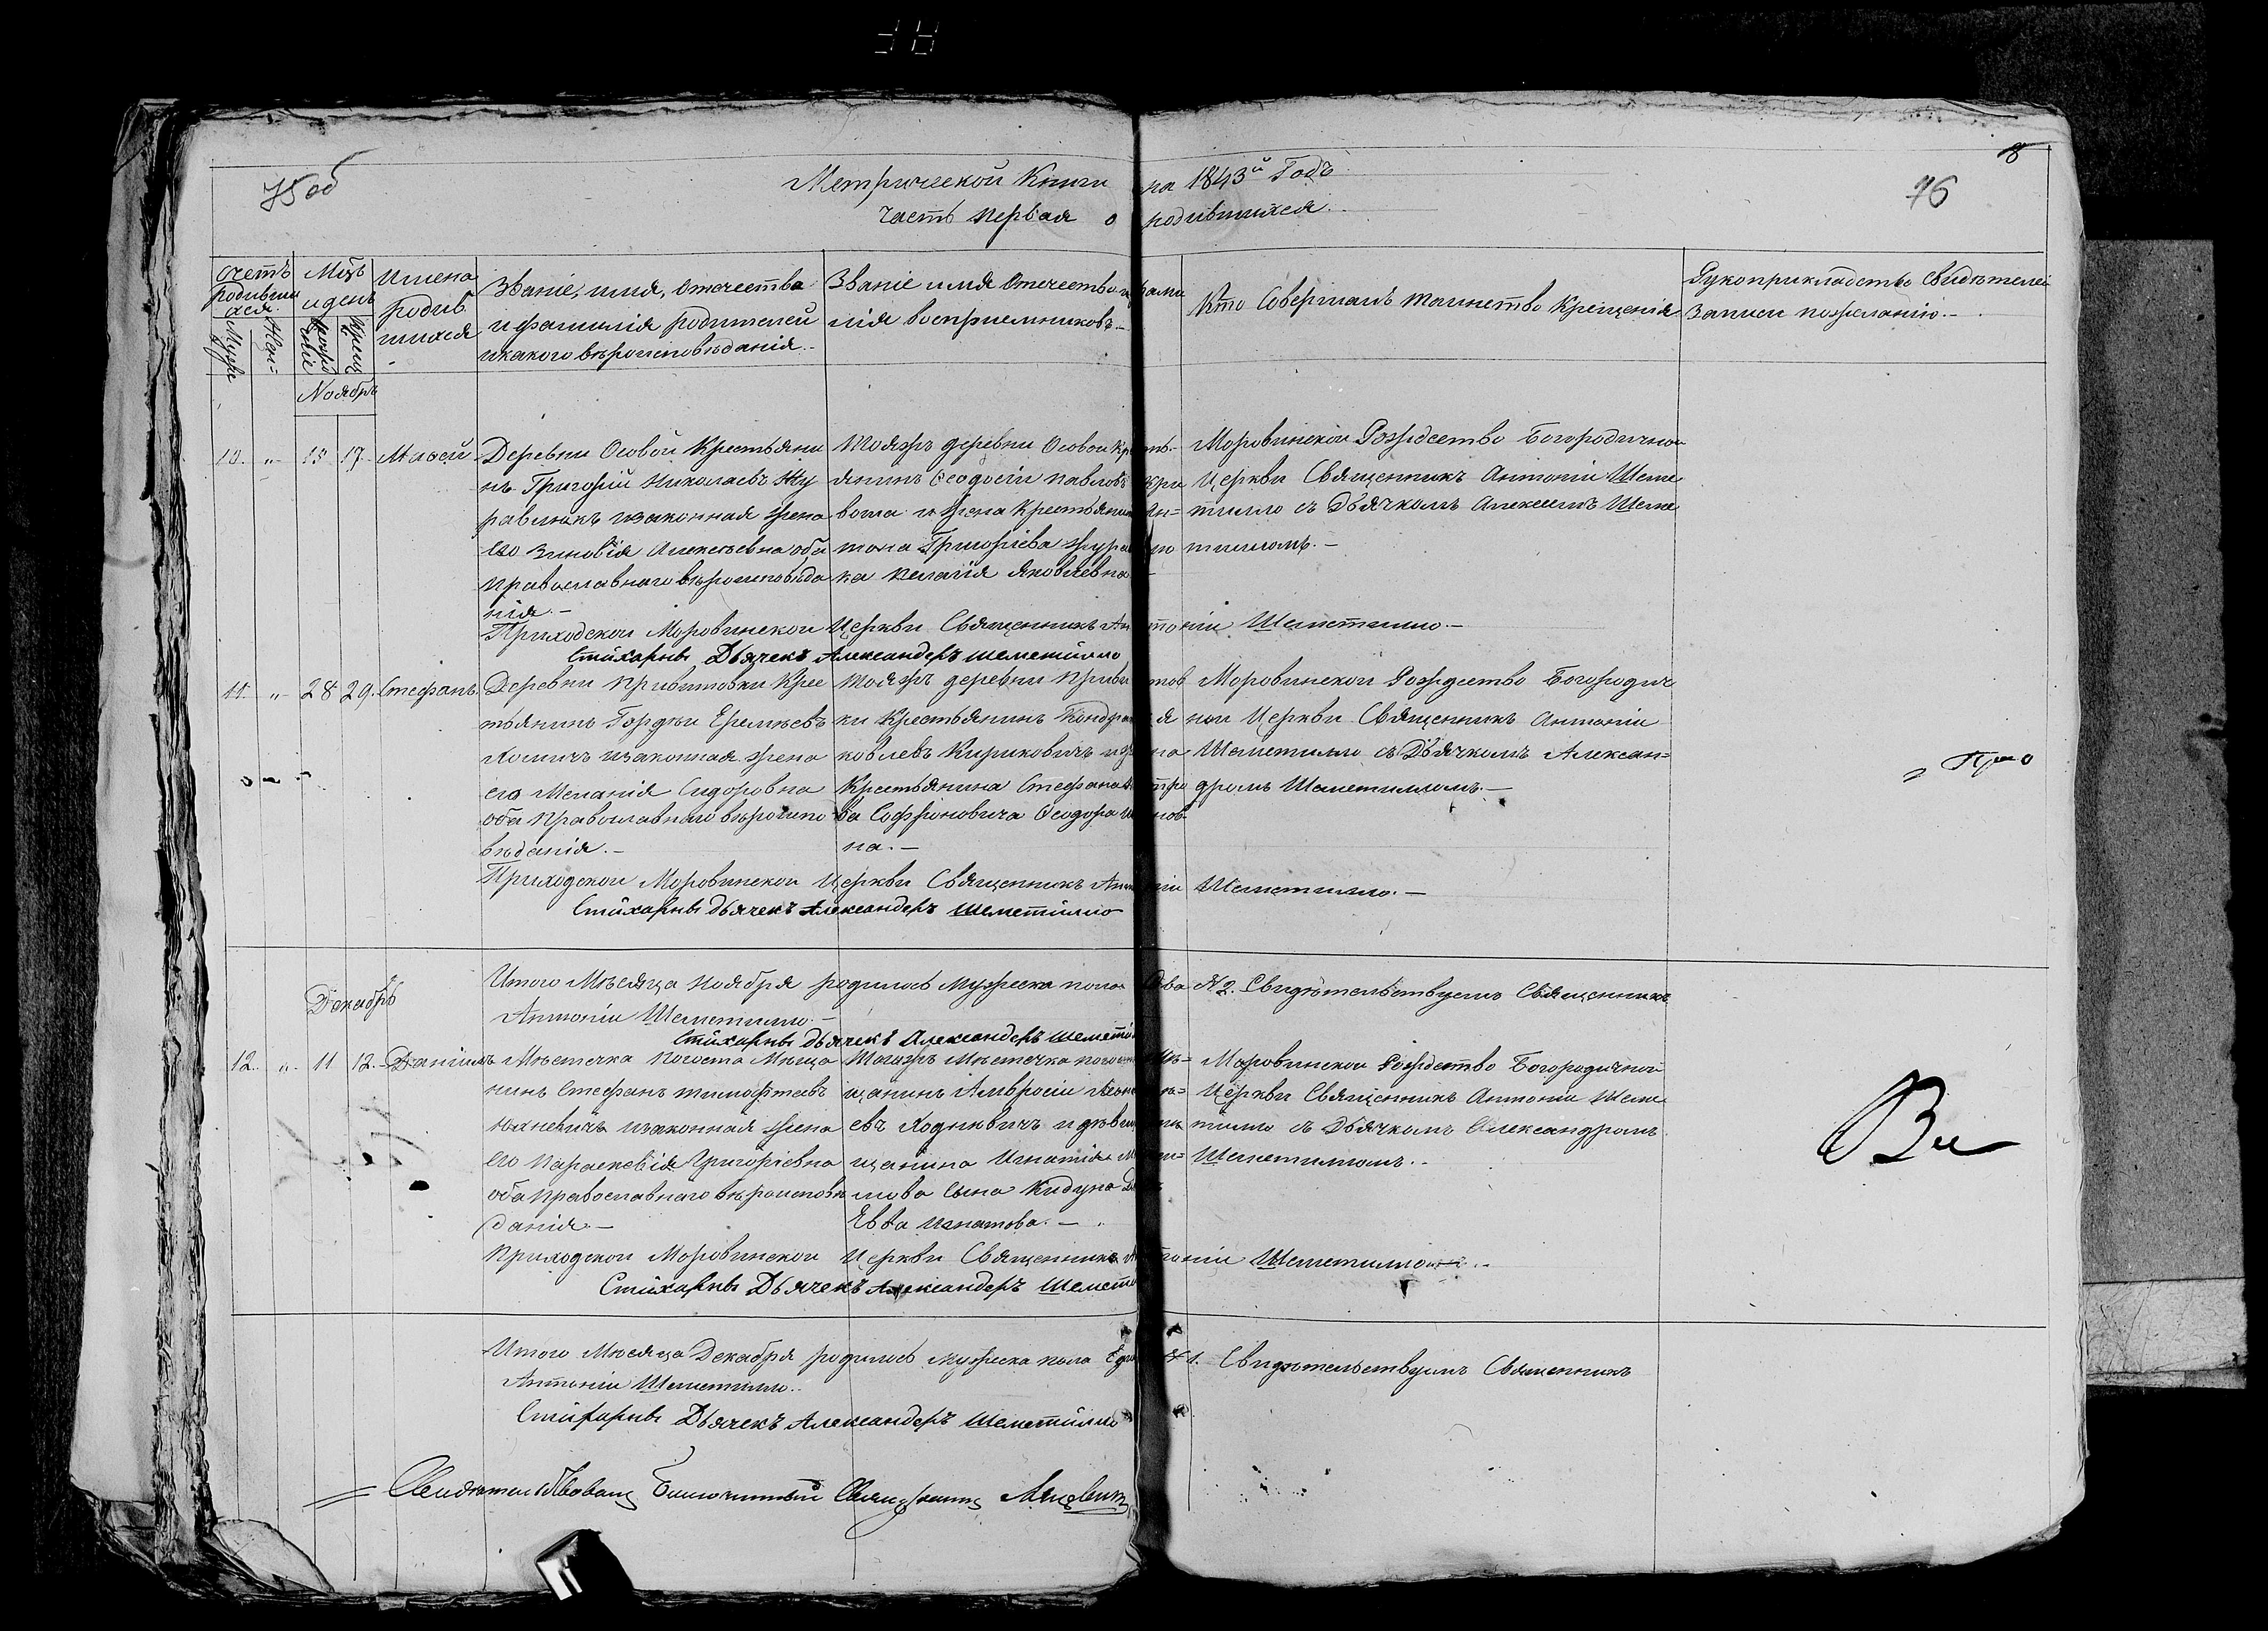 75 об
Метрической Книги на 1843й Годъ
8
76
Часть первая о родившихся.
Счетъ родивши хся.
Муж
Жен
Мѣцъ и день
Рожденіе
Крещ
Имена родив шихся
Званіе, имя, отечества
и фамилія родителей
и какого вѣроисповѣданія.
Званіе имя Отечество и фами
лія воспріемниковъ
Кто Совершалъ таинство Крещенія
Рукоприкладство Свидѣтелей
Записи по желанію.
Ноябрь
10. " 15 17 Мавей
Деревни Осовой Крестьяни
нъ Григорій Николаевъ Жу
равликъ и законная жена
его Зиновія Алексѣевна оба
православнаго вѣроисповѣда
нія.
Тояжъ деревни Осовой Кресть
янинъ Ѳеодосій Павловъ
вота и жена Крестьянина Ан=
тона Григоріева Журавли
ка Пелагія Яковлевна
Моровинской Рождество Богородичной
Церкви Священникъ Антоній Шеме
тилло съ Дьячкомъ Алексеемъ Шеме
тилломъ.
Приходской Моровинской Церкви Священникъ Антоній Шеметилло.
Стихарный Дьячекъ Александеръ Шеметилло
11. " 28 29. Стефанъ
Деревни Привитовки Крес
тьянинъ Гордѣй Еремѣевъ
и законная жена
его Меланія Сидоровна
оба православнаго вѣроиспо
вѣданія.
Тояжъ деревни Привитов
ки Крестьянинъ Кондратъ Я
ковлевъ Кириковичъ и жена
Крестьянина Стефана Петро
ва Софроновича Ѳеодора
на.
Моровинской Рождество Богородич
ной Церкви Священникъ Антоній
Шеметилло съ Дьячкомъ Алексан=
дромъ Шеметилломъ.
Приходской Моровинской Церкви Священникъ Антоній Шеметилло.
Стихарный дьячекъ Александеръ Шеметилло
Итого Мѣсяца Ноября родилось мужеска пола Два № 2. Свидѣтельствуемъ Священникъ
Антоній Шеметилло.
Стихарный дьячекъ Александеръ Шеметил
Декабрь
12. " 11 12. Даніилъ
Мѣстечка Погоста Мѣща
нинъ Стефанъ Тимофтеевъ
и законная жена
его Параскевія Григоріевна
оба православнаго вѣроисповѣ
данія.
Тогожъ Мѣстечка погоста Мѣ=
щанинъ Амвросій
евъ Ходкѣвичъ и дѣвица
щанина Игнатія
лова сына Кидуна
Евва Игнатова.
Моровинской Рождество Богородичной
Церкви Священникъ Антоній Шеме
тилло съ Дьячкомъ Александромъ
Шеметилломъ.
Приходской Моровинской Церкви Священникъ Антоній Шеметилло.
Стихарный Дьячекъ Александеръ Шемети
Итого Мѣсяца Декабря родилось мужеска пола Един № 1. Свидѣтельствуемъ Священникъ
Антоній Шеметилло.
Стихарный Дьячекъ Александеръ Шеметилло
Свидѣтельствовалъ Благочинный Священникъ